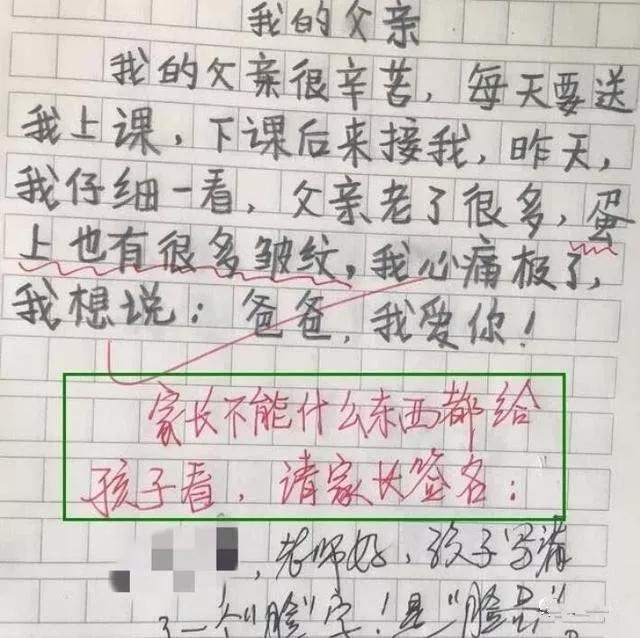 我的父亲
我的父亲很辛苦，每天要送
我上课，下课后来接我，昨天，
我仔细一看，父亲老了很多，蛋
上也有很多皱纹，我心痛极了，
我想说：爸爸，我爱你！
家长不能什么东西都给
孩子看，请家长签名：
，老师好，孩子写漏
了一个“脸”字！是“脸蛋”